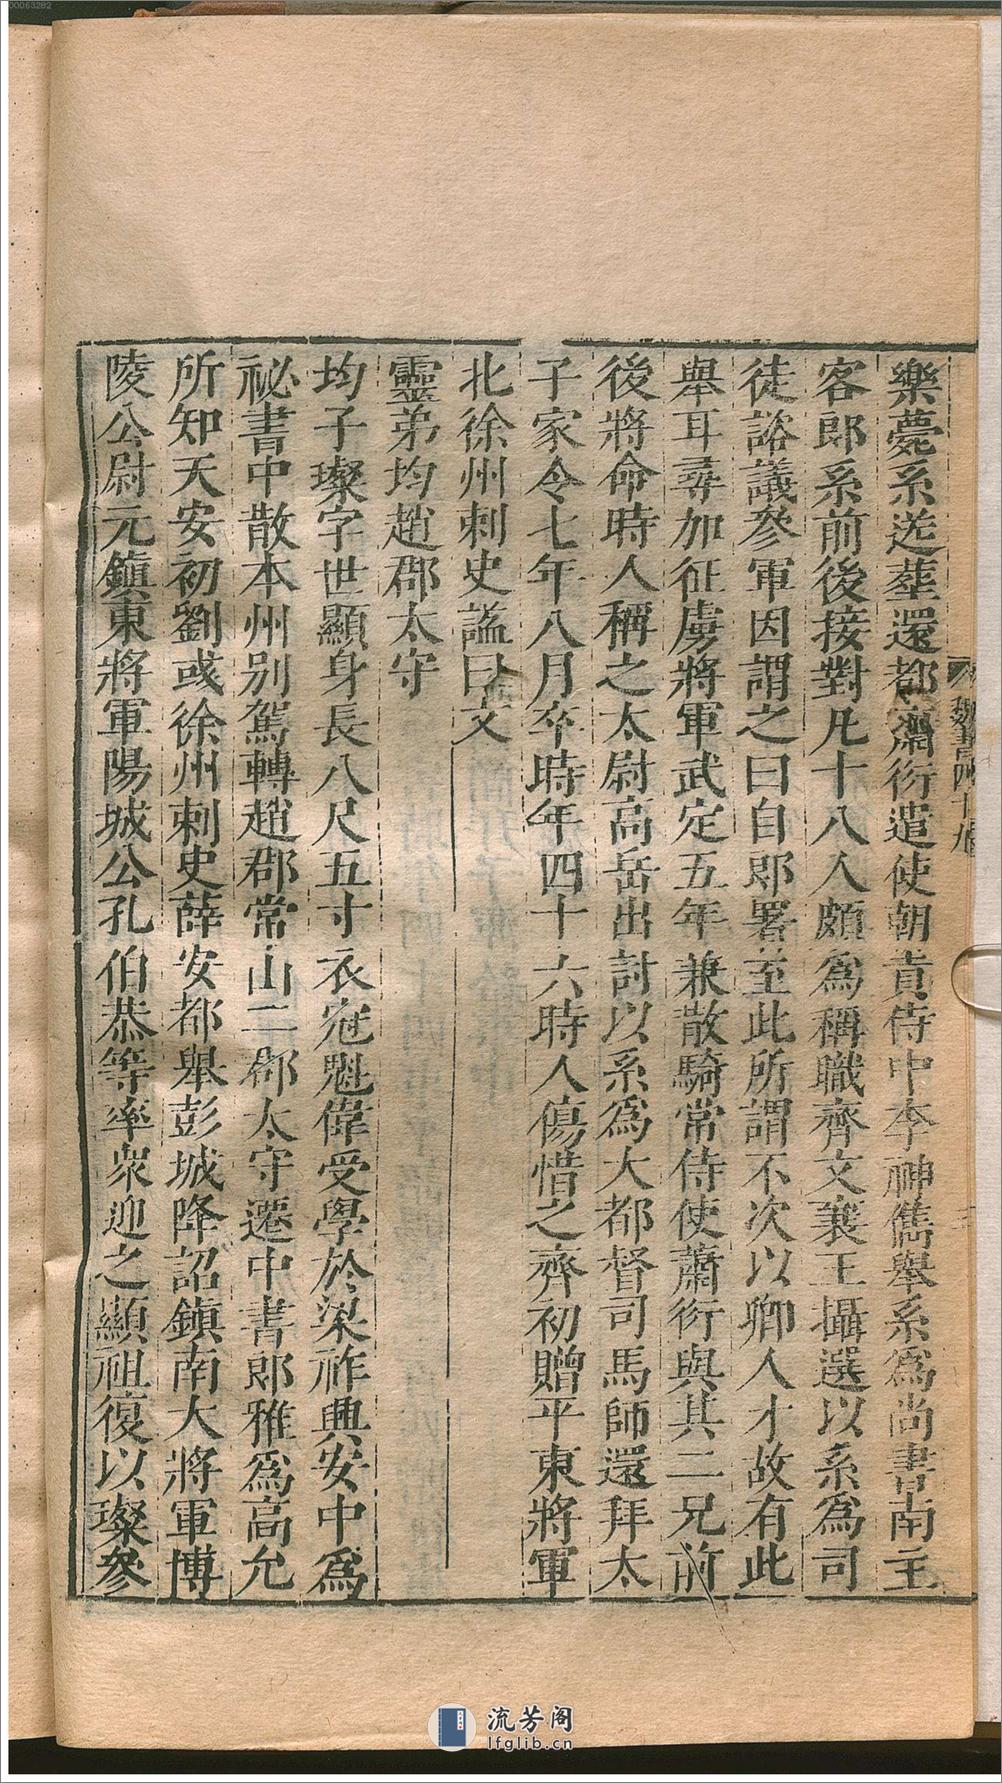 魏書四十九
樂薨系送葬還都蕭衍遣使朝貢侍中李神儁舉系爲尚書南主
客郎系前後接對凡十八人頗爲稱職齊文襄王攝選以系爲司
徒諮議參軍因謂之曰自郎署至此所謂不次以卿人才故有此
舉耳尋加征虜將軍武定五年兼散騎常侍使蕭衍與其二兄前
後將命時人稱之太尉高岳出討以系爲大都督司馬師還拜太
子家令七年八月卒時年四十六時人傷惜之齊初贈平東將軍
北徐州刺史謚曰文
靈弟均趙郡太守
均子璨字世顯身長八尺五寸衣冠魁偉受學於梁祚興安中爲
祕書中散本州別駕轉趙郡常山二郡太守遷中書郎雅爲高允
所知天安初劉彧徐州刺史薛安都舉彭城降詔鎮南大將軍博
陵公尉元鎮東將軍陽城公孔伯恭等率衆迎之顯祖復以璨參
流芳阁
lfglib.cn
00063282